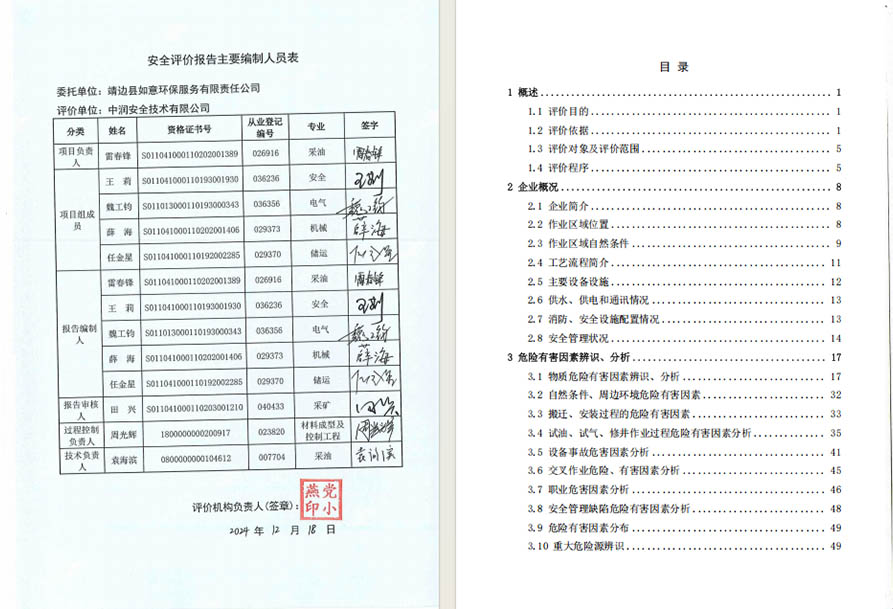 安全评价报告主要编制人员表
委托单位：靖边县如意环保服务有限责任公司
评价单位：中润安全技术有限公司
分类 姓名 资格证书号 从业登记编号 专业 签字
项目负责人 雷春锋 S011041000110202001389 026916 采油 雷春锋
项目组成员 王 莉 S011041000110193001930 036236 安全 王莉
魏工钧 S011013000110193000343 036356 电气 魏工钧
薛 海 S011041000110202001406 029373 机械 薛海
任金星 S011041000110192002285 029370 储运
报告编制人 雷春锋 S011041000110202001389 026916 采油 雷春锋
王 莉 S011041000110193001930 036236 安全 王莉
魏工钧 S011013000110193000343 036356 电气 魏工钧
薛 海 S011041000110202001406 029373 机械 薛海
任金星 S011041000110192002285 029370 储运
报告审核人 田 兴 S011041000110203001210 040433 采矿
过程控制负责人 周光辉 1800000000200917 023820 材料成型及控制工程 周光辉
技术负责人 袁海滨 0800000000104612 007704 采油 袁海滨
评价机构负责人(签章)：
燕党
印小
2024 年 12 月 18 日
目 录
1 概述 1
1.1 评价目的 1
1.2 评价依据 1
1.3 评价对象及评价范围 5
1.4 评价程序 5
2 企业概况 8
2.1 企业简介 8
2.2 作业区域位置 8
2.3 作业区域自然条件 9
2.4 工艺流程简介 11
2.5 主要设备设施 12
2.6 供水、供电和通讯情况 13
2.7 消防、安全设施配置情况 13
2.8 安全管理状况 14
3 危险有害因素辨识、分析 17
3.1 物质危险有害因素辨识、分析 17
3.2 自然条件、周边环境危险有害因素 32
3.3 搬迁、安装过程的危险有害因素 33
3.4 试油、试气、修井作业过程危险有害因素分析 35
3.5 设备事故危害因素分析 41
3.6 交叉作业危险、有害因素分析 45
3.7 职业危害因素分析 46
3.8 安全管理缺陷危险有害因素分析 48
3.9 危险有害因素分布 49
3.10 重大危险源辨识 49